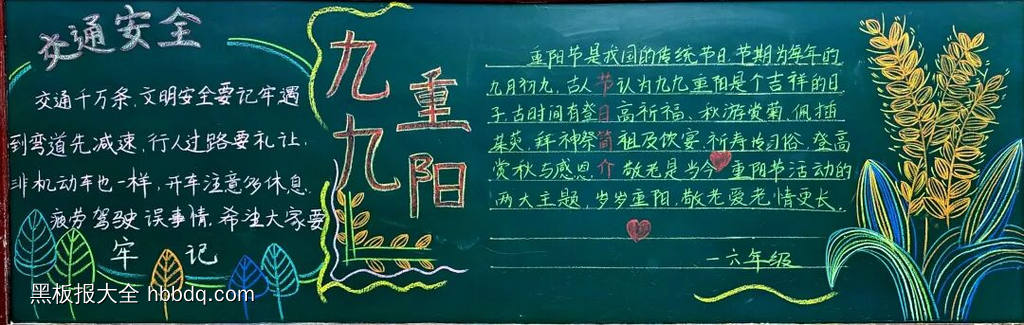 交通安全
交通千万条,文明安全要记牢遇
到弯道先减速,行人过路要礼让,
非机动车也一样,开车注意多休息,
疲劳驾驶误事情,希望大家要
牢记
九九
重阳
重阳节是我国的传统节日,节期为每年的
九月初九,古人认为九九重阳是个吉祥的日
子,古时间有登高祈福、秋游赏菊、佩插
茱萸、拜神祭祖及饮宴祈寿传习俗、登高
赏秋与感恩敬老是当今重阳节活动的
两大主题,岁岁重阳,敬老爱老情更长,
节日简介
一六年级
黑板报大全 hbbdq.com